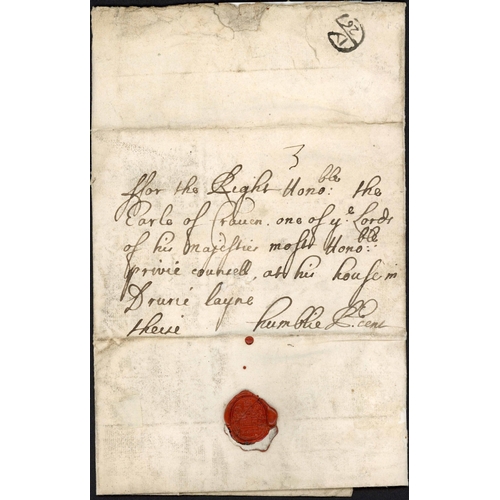 26
3
ffor the Right Honoble: the
Earle of Craven. one of ye Lords
of his majesties most Honoble:
privie counsell, at his house in
Drurie layne
these humblie